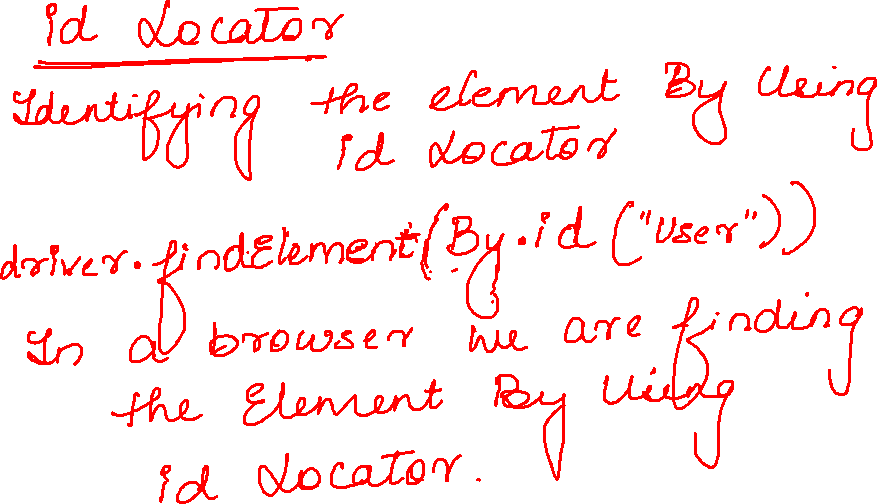 id Locator
Identifying the element By Using
id Locator
driver.findElement(By.id("User"))
In a browser we are finding
the Element By Using
id Locator.